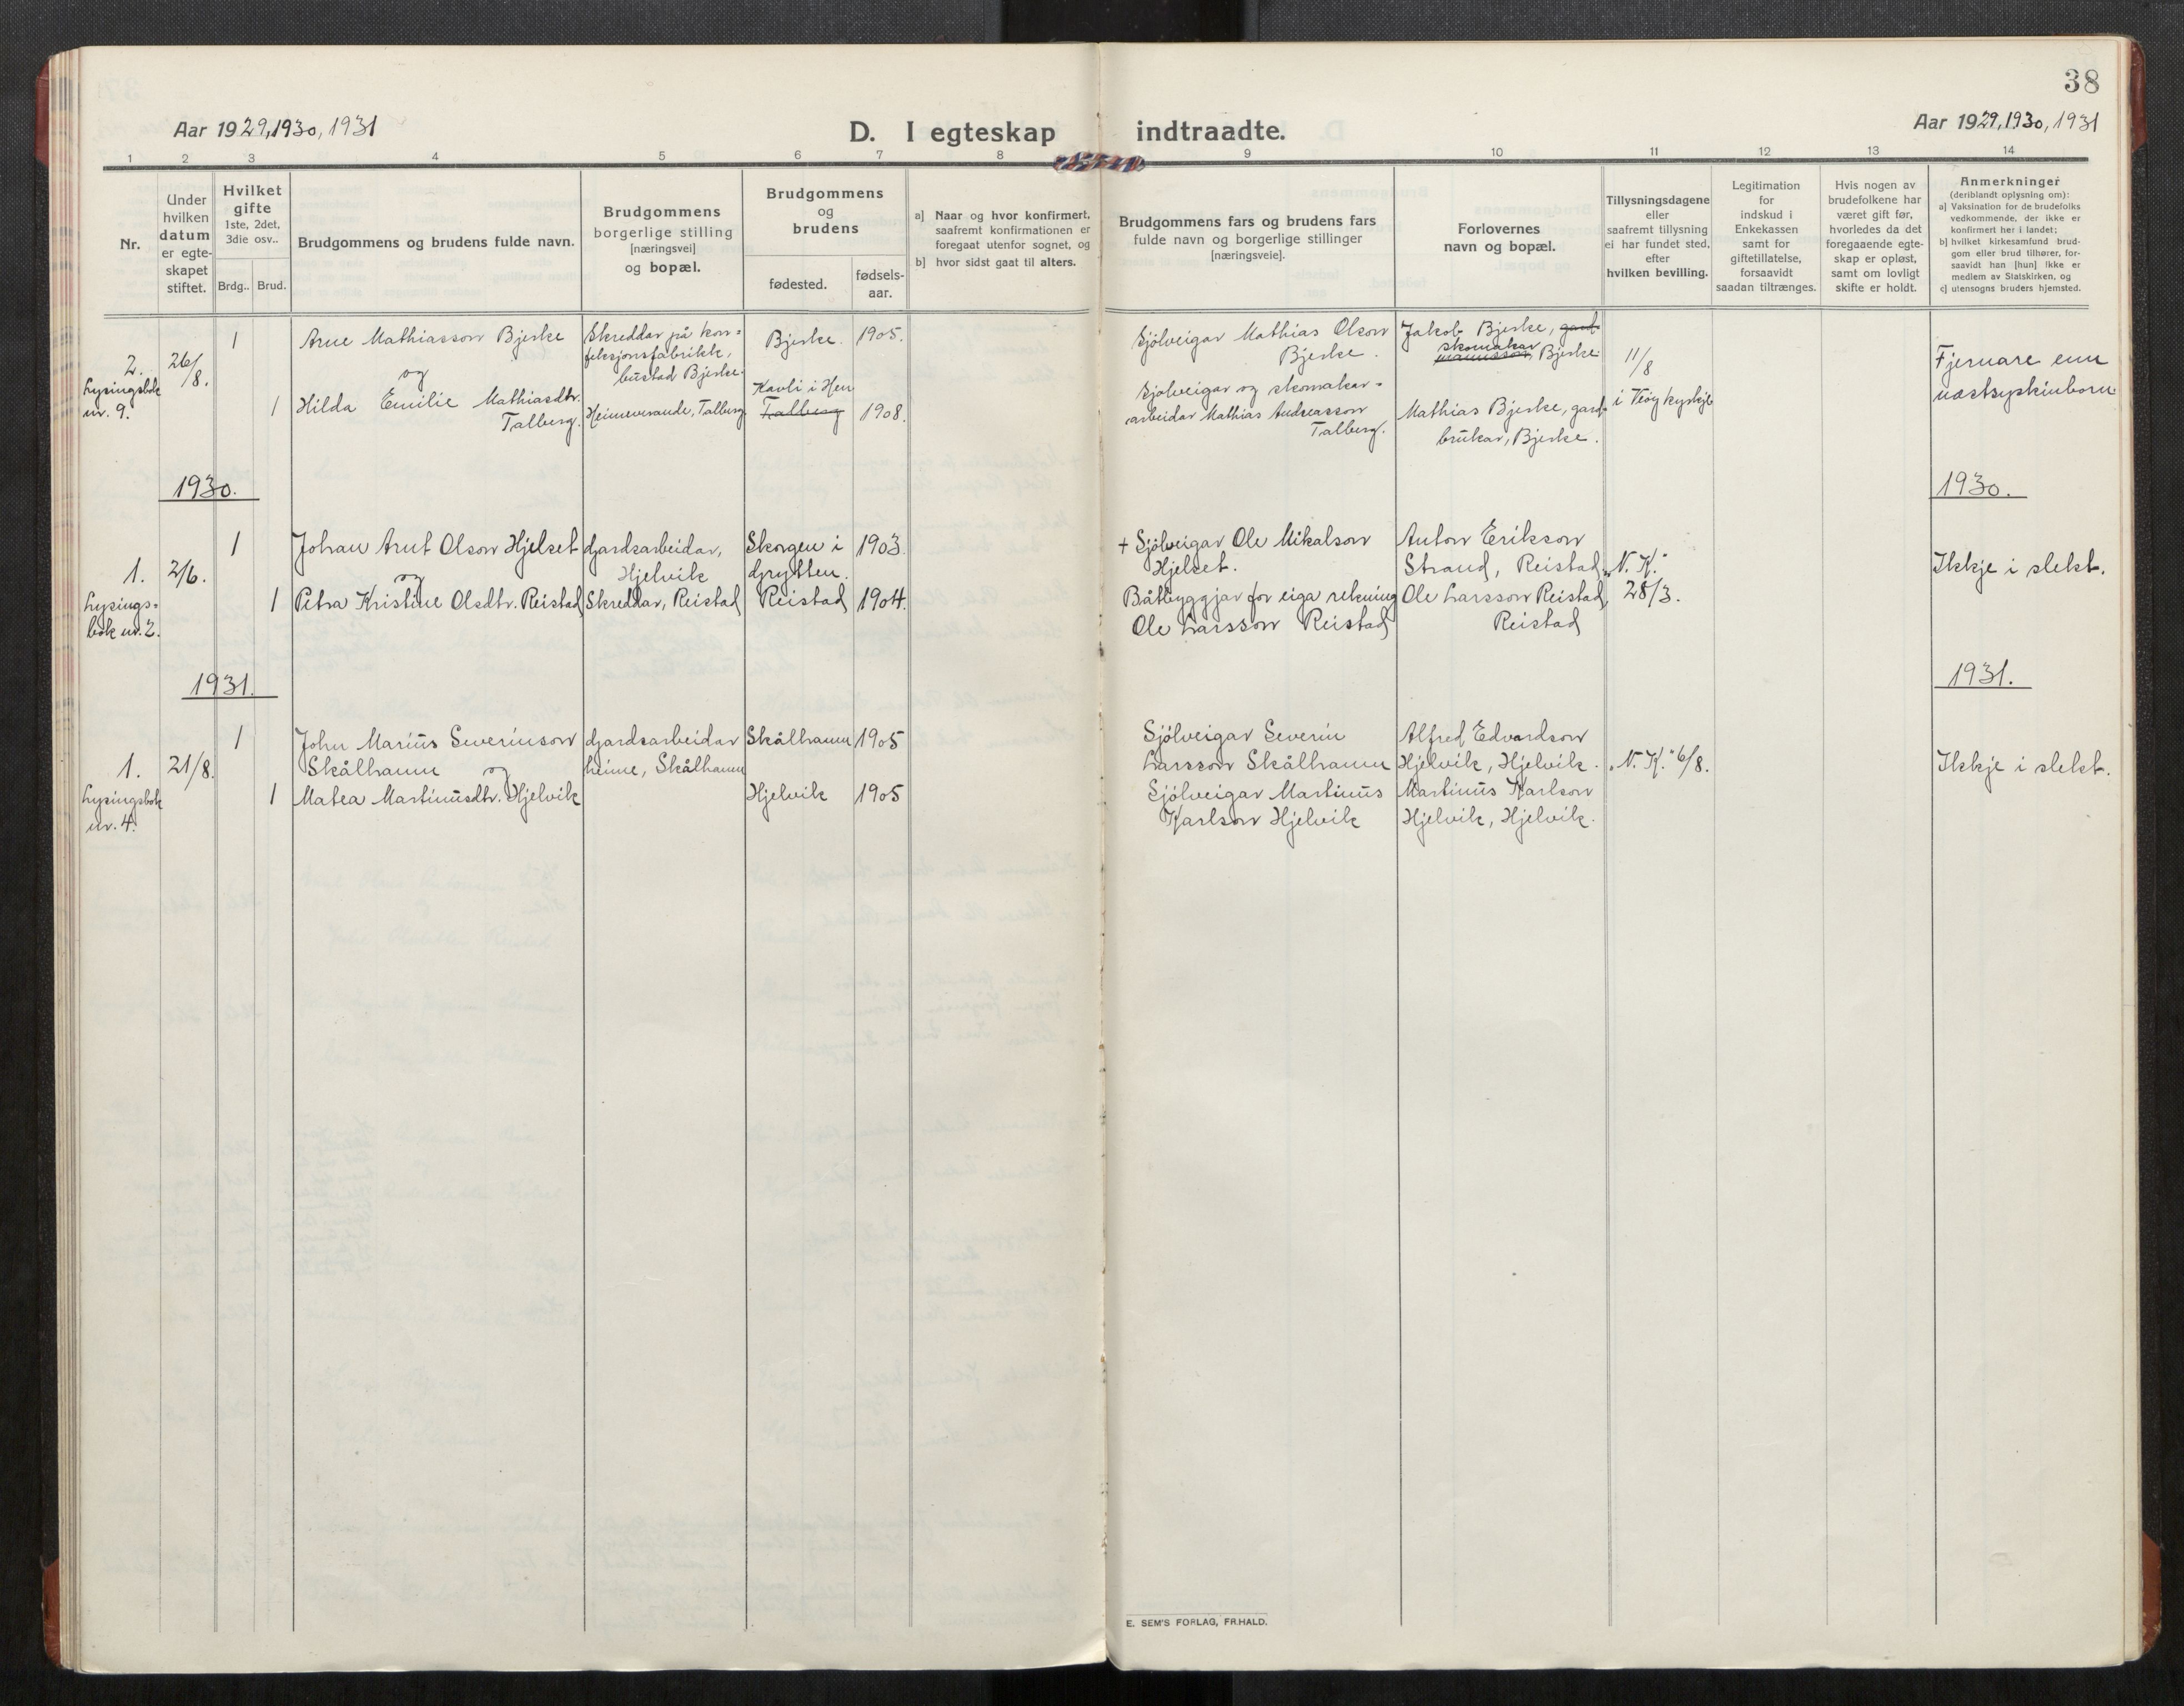 38
Aar 1929, 1930, 1931
D. I egteskap indtraadte.
Aar 1929, 1930, 1931
1 2 3 4 5 6 7 8 9 10 11 12 13 14
Nr.
Under
hvilken
datum
er egte-
skapet
stiftet.
Hvilket
gifte
1ste, 2det,
3die osv..
Brdg.. Brud.
Brudgommens og brudens fulde navn.
Brudgommens
borgerlige stilling
[næringsvei]
og bopæl.
Brudgommens
og
brudens
fødested.
fødsels-
aar.
a] Naar og hvor konfirmert,
saafremt konfirmationen er
foregaat utenfor sognet, og
b] hvor sidst gaat til alters.
Brudgommens fars og brudens fars
fulde navn og borgerlige stillinger
[næringsveie].
Forlovernes
navn og bopæl.
Tillysningsdagene
eller
saafremt tillysning
ei har fundet sted,
efter
hvilken bevilling.
Legitimation
for
indskud i
Enkekassen
samt for
giftetillatelse,
forsaavidt
saadan tiltrænges.
Hvis nogen av
brudefolkene har
været gift før,
hvorledes da det
foregaaende egte-
skap er opløst,
samt om lovligt
skifte er holdt.
Anmerkninger
(deriblandt oplysning om):
a] Vaksination for de brudefolks
vedkommende, der ikke er
konfirmert her i landet;
b] hvilket kirkesamfund brud-
gom eller brud tilhører, for-
saavidt han [hun] ikke er
medlem av Statskirken, og
c] utensogns bruders hjemsted.
2.
Lysingsbok
nr. 9.
26/8.
1
Arne Mathiasson Bjerke
og
1
Hilda Emilie Mathiasdtr.
Talberg.
Skreddar på kon=
feksjonsfabrikk,
bustad Bjerke.
Heimeverande, Talberg
Bjerke. 1905.
Kavli i Hen
Talberg 1908.
Sjölveigar Mathias Olson
Bjerke.
Sjölveigar og skomakar=
arbeidar Mathias Andreasson
Talberg.
Jakob Bjerke, gard-
skomakar
Bjerke
Mathias Bjerke, gard-
brukar, Bjerke.
11/8
i Veöy kyrkje
Fjernare enn
næstsyskinborn
1930.
1930.
1.
Lysings=
bok nr. 2.
2/6.
1
Johan Arnt Olson Hjelset
og
1
Petra Kristine Olsdtr. Reistad
Gardsarbeidar,
Hjelvik
Skreddar, Reistad
Skorgen i
Grytten.
1903.
Reistad 1904.
+ Sjölveigar Ole Mikalson
Hjelset.
Båtbyggjar for eiga rekning
Ole Larsson Reistad
Anton Erikson
Strand, Reistad
Ole Larsson Reistad,
Reistad
"N. K."
28/3.
Ikkje i slekt.
1931.
1931.
1.
Lysingsbok
nr. 4.
21/8.
1
John Marius Severinson
Skålhamn og
1
Matea Martinusdtr. Hjelvik
Gardsarbeidar
heime, Skålhamn
Skålhamn 1905
Hjelvik 1905
Sjölveigar Severin
Larsson Skålhamn
Sjölveigar Martinus
Karlson Hjelvik
Alfred Edvardson
Hjelvik, Hjelvik.
Martinus Karlson
Hjelvik, Hjelvik.
"N. K." 6/8.
Ikkje i slekt.
E. SEM'S FORLAG, FR.HALD.